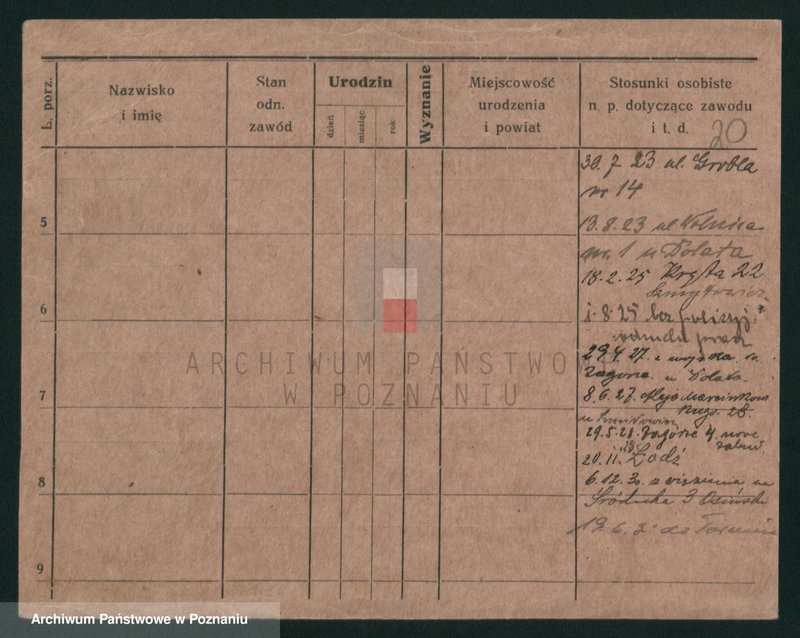 L. porz.
Nazwisko
i imię
Stan
odn.
zawód
Urodzin
dzień
miesiąc
rok
Wyznanie
Miejscowość
urodzenia
i powiat
Stosunki osobiste
n. p. dotyczące zawodu
i t. d.
20
30.7.23 ul. Grobla
nr 14
5
13.8.23 ul Wolnica
nr. 1 u Dolata
18.2.25 Kręta 22
6
1.8.25 bez policyj.
29.4.27. z na
Zagórze u Dolata
7
8.6.27. Aleja Marcinkow
28.
29.5.28. Zagórze 4.
20.11. Łódź
8
6.12.30 z więzienia na
Śródecka 3 Osiński
19.6.3 do
9
ARCHIWUM PAŃSTWO
W POZNANIU
Archiwum Państwowe w Poznaniu